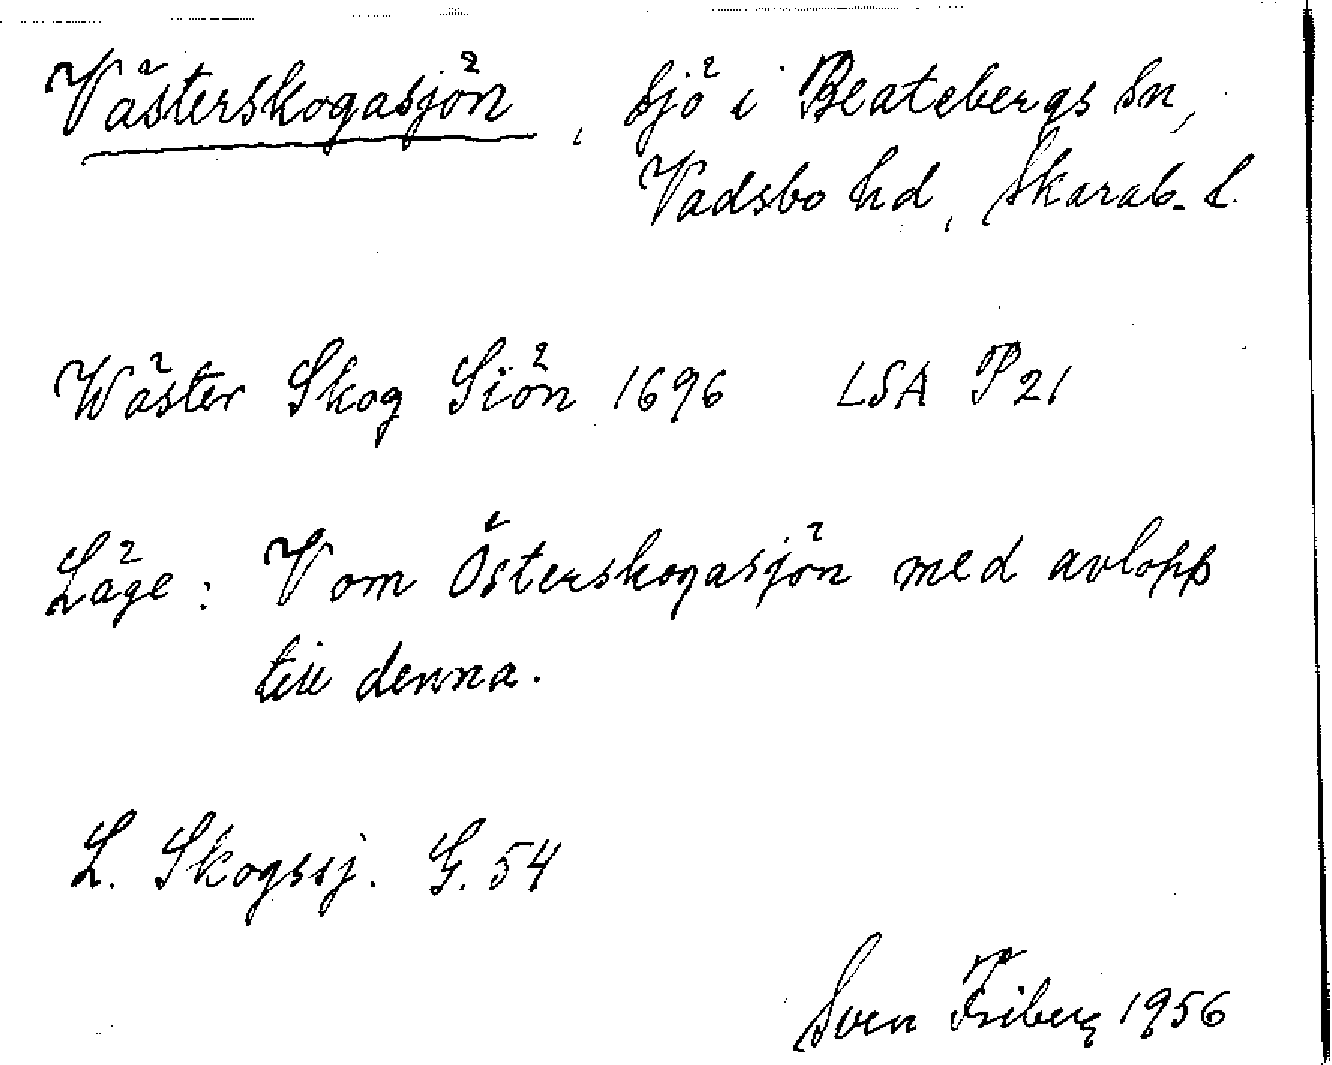 Västerskogasjön, sjö i Beatebergs sn,
Vadsbo hd, Skarab. l.
Wäster Skog Siön 1696 LSA P21
Läge: V om Österskogasjön med avlopp
till denna.
L. Skogssj. G. 54
Sven Friberg 1956